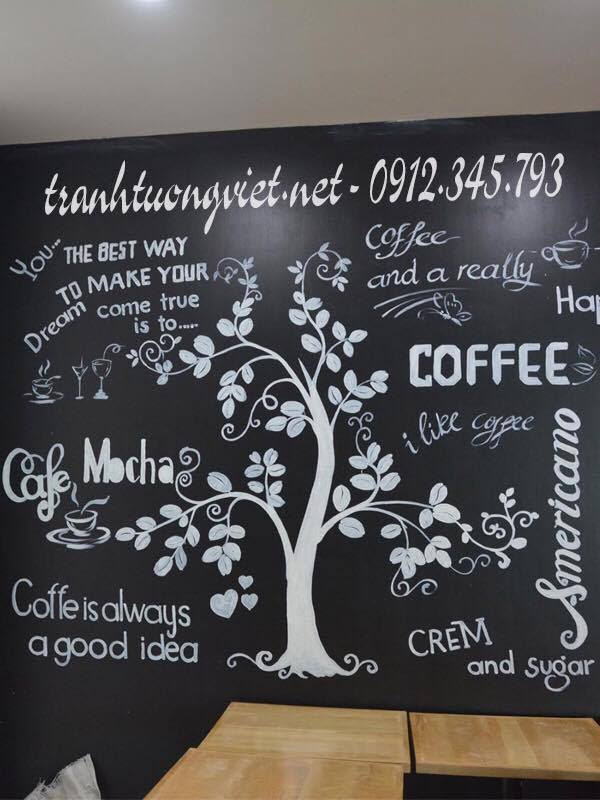 tranhtuongviet.net - 0912.345.793
You...
THE BEST WAY
TO MAKE YOUR
Dream come true
is to.....
Coffee
and a really
Hap
COFFEE
i like coffee
Cafe Mocha
Americano
Coffe is always
a good idea
CREM
and sugar